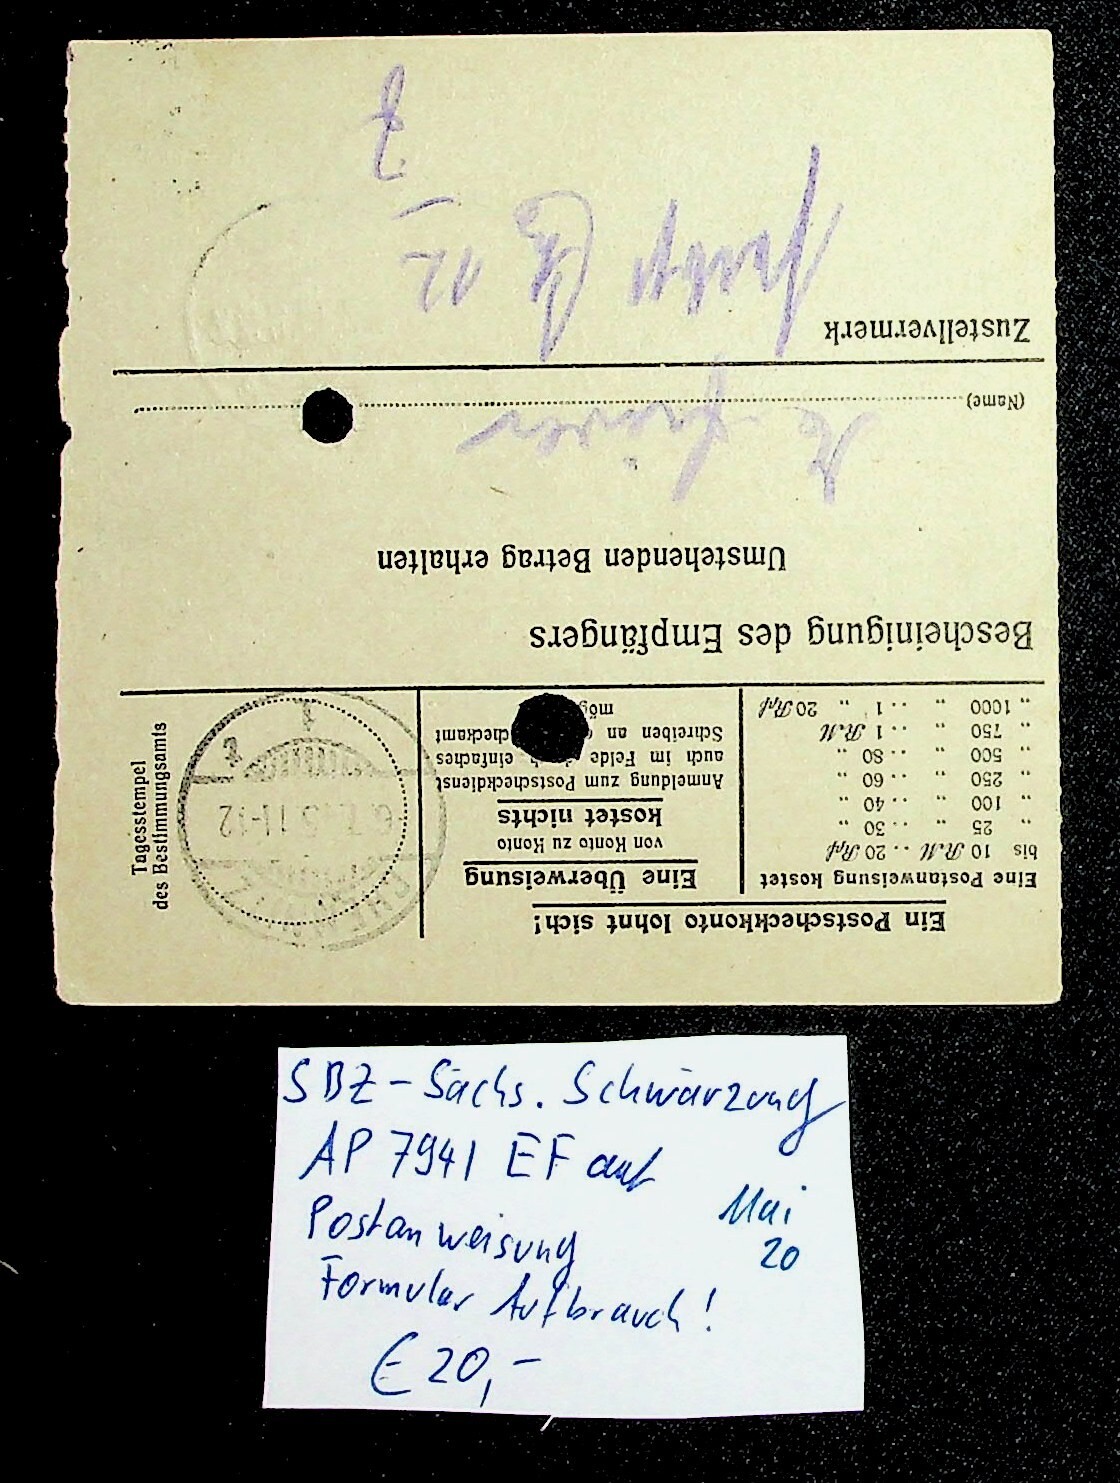 Ein Postscheckkonto lohnt sich!
Eine Postanweisung kostet
bis 10 RM .. 20 Rpf
„ 25 „ .. 30 „
„ 100 „ .. 40 „
„ 250 „ .. 60 „
„ 500 „ .. 80 „
„ 750 „ .. 1 RM
„ 1000 „ .. 1 „ 20 Rpf
Eine Überweisung
von Konto zu Konto
kostet nichts
Anmeldung zum Postscheckdienst
auch im Felde einfaches
Schreiben an checkamt
mög
Tagesstempel
des Bestimmungsamts
11-12
Bescheinigung des Empfängers
Umstehenden Betrag erhalten
(Name)
Zustellvermerk
12
SBZ - Sächs. Schwärzung
AP 794I EF auf
Postanweisung
Formular Aufbrauch!
Mai
20
€ 20,-